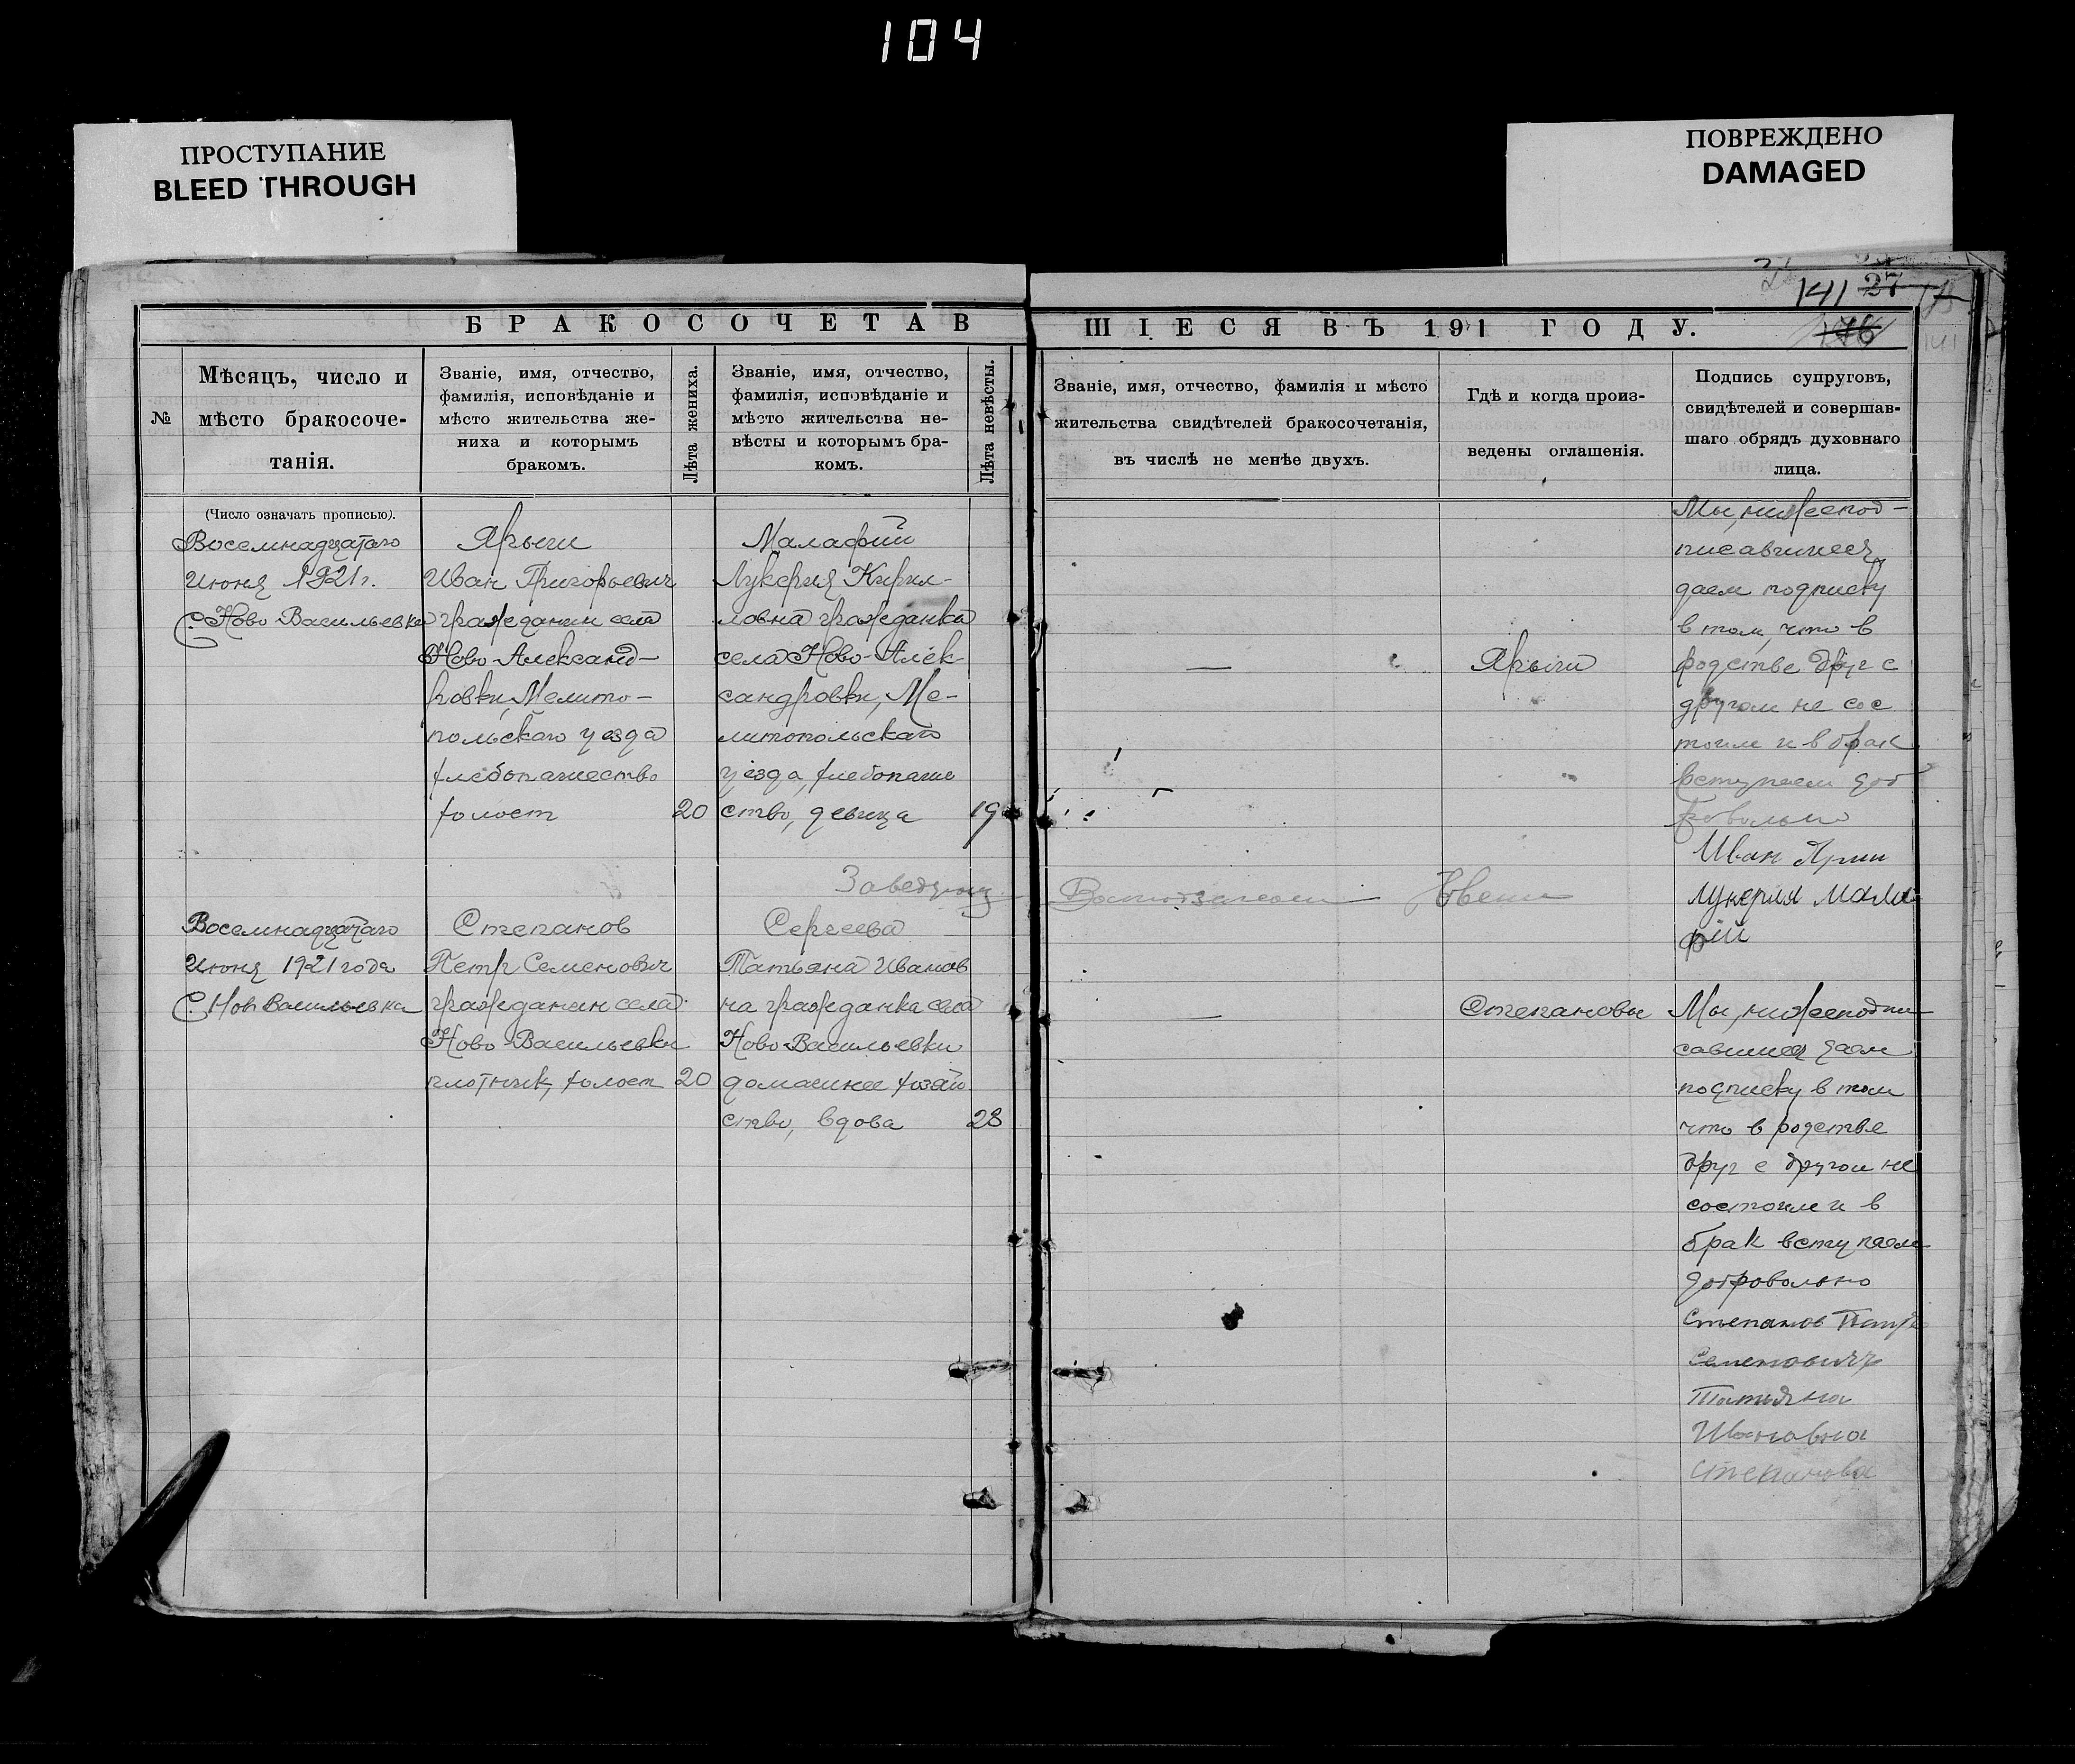 104
ПРОСТУПАНИЕ
BLEED THROUGH
ПОВРЕЖДЕНО
DAMAGED
141 27
176
БРАКОСОЧЕТАВ
ШІЕСЯ ВЪ 191 ГОДУ.
№
Мѣсяцъ, число и
мѣсто бракосоче-
танія.
Званіе, имя, отчество,
фамилія, исповѣданіе и
мѣсто жительства же-
ниха и которымъ
бракомъ.
Лѣта жениха.
Званіе, имя, отчество,
фамилія, исповѣданіе и
мѣсто жительства не-
вѣсты и которымъ бра-
комъ.
Лѣта невѣсты.
Званіе, имя, отчество, фамилія и мѣсто
жительства свидѣтелей бракосочетанія,
въ числѣ не менѣе двухъ.
Гдѣ и когда произ-
ведены оглашенія.
Подпись супруговъ,
свидѣтелей и совершав-
шаго обрядъ духовнаго
лица.
(Число означать прописью).
Восемнадцатаго
Июня 1921 г.
С. Ново Васильевка
Ярыги
Иван Григорьевич
гражданин села
Ново-Александ-
ровки, Мелито-
польскаго уезда
хлебопашество
холост
20
Малафий
Лукерия Кирил-
ловна гражданка
села Ново-Алек-
сандровки, Ме-
литопольскаго
уезда, хлебопаше
ство, девица
19
—
Ярыги
Мы, нижепод-
писавшиеся,
даем подписку
в том, что в
родстве друг с
другом не сос
тоим и в брак
вступаем доб
ровольно
Иван
Лукерия Мала
фий
Заведующ
Восемнадцатаго
Июня 1921 года
С. Нов Васильевка
Степанов
Петр Семенович
гражданин села
Ново-Васильевки
плотник, холост
20
Сергеева
Татьяна Иванов
на гражданка села
Ново-Васильевки
домашнее хозяй
ство, вдова
23
—
Степановы
Мы, нижеподпи
савшиеся даем
подписку в том
что в родстве
друг с другом не
состоим и в
брак вступаем
добровольно
Степанов Петр
Семенович
Татьяна
Ивановна
Степанова